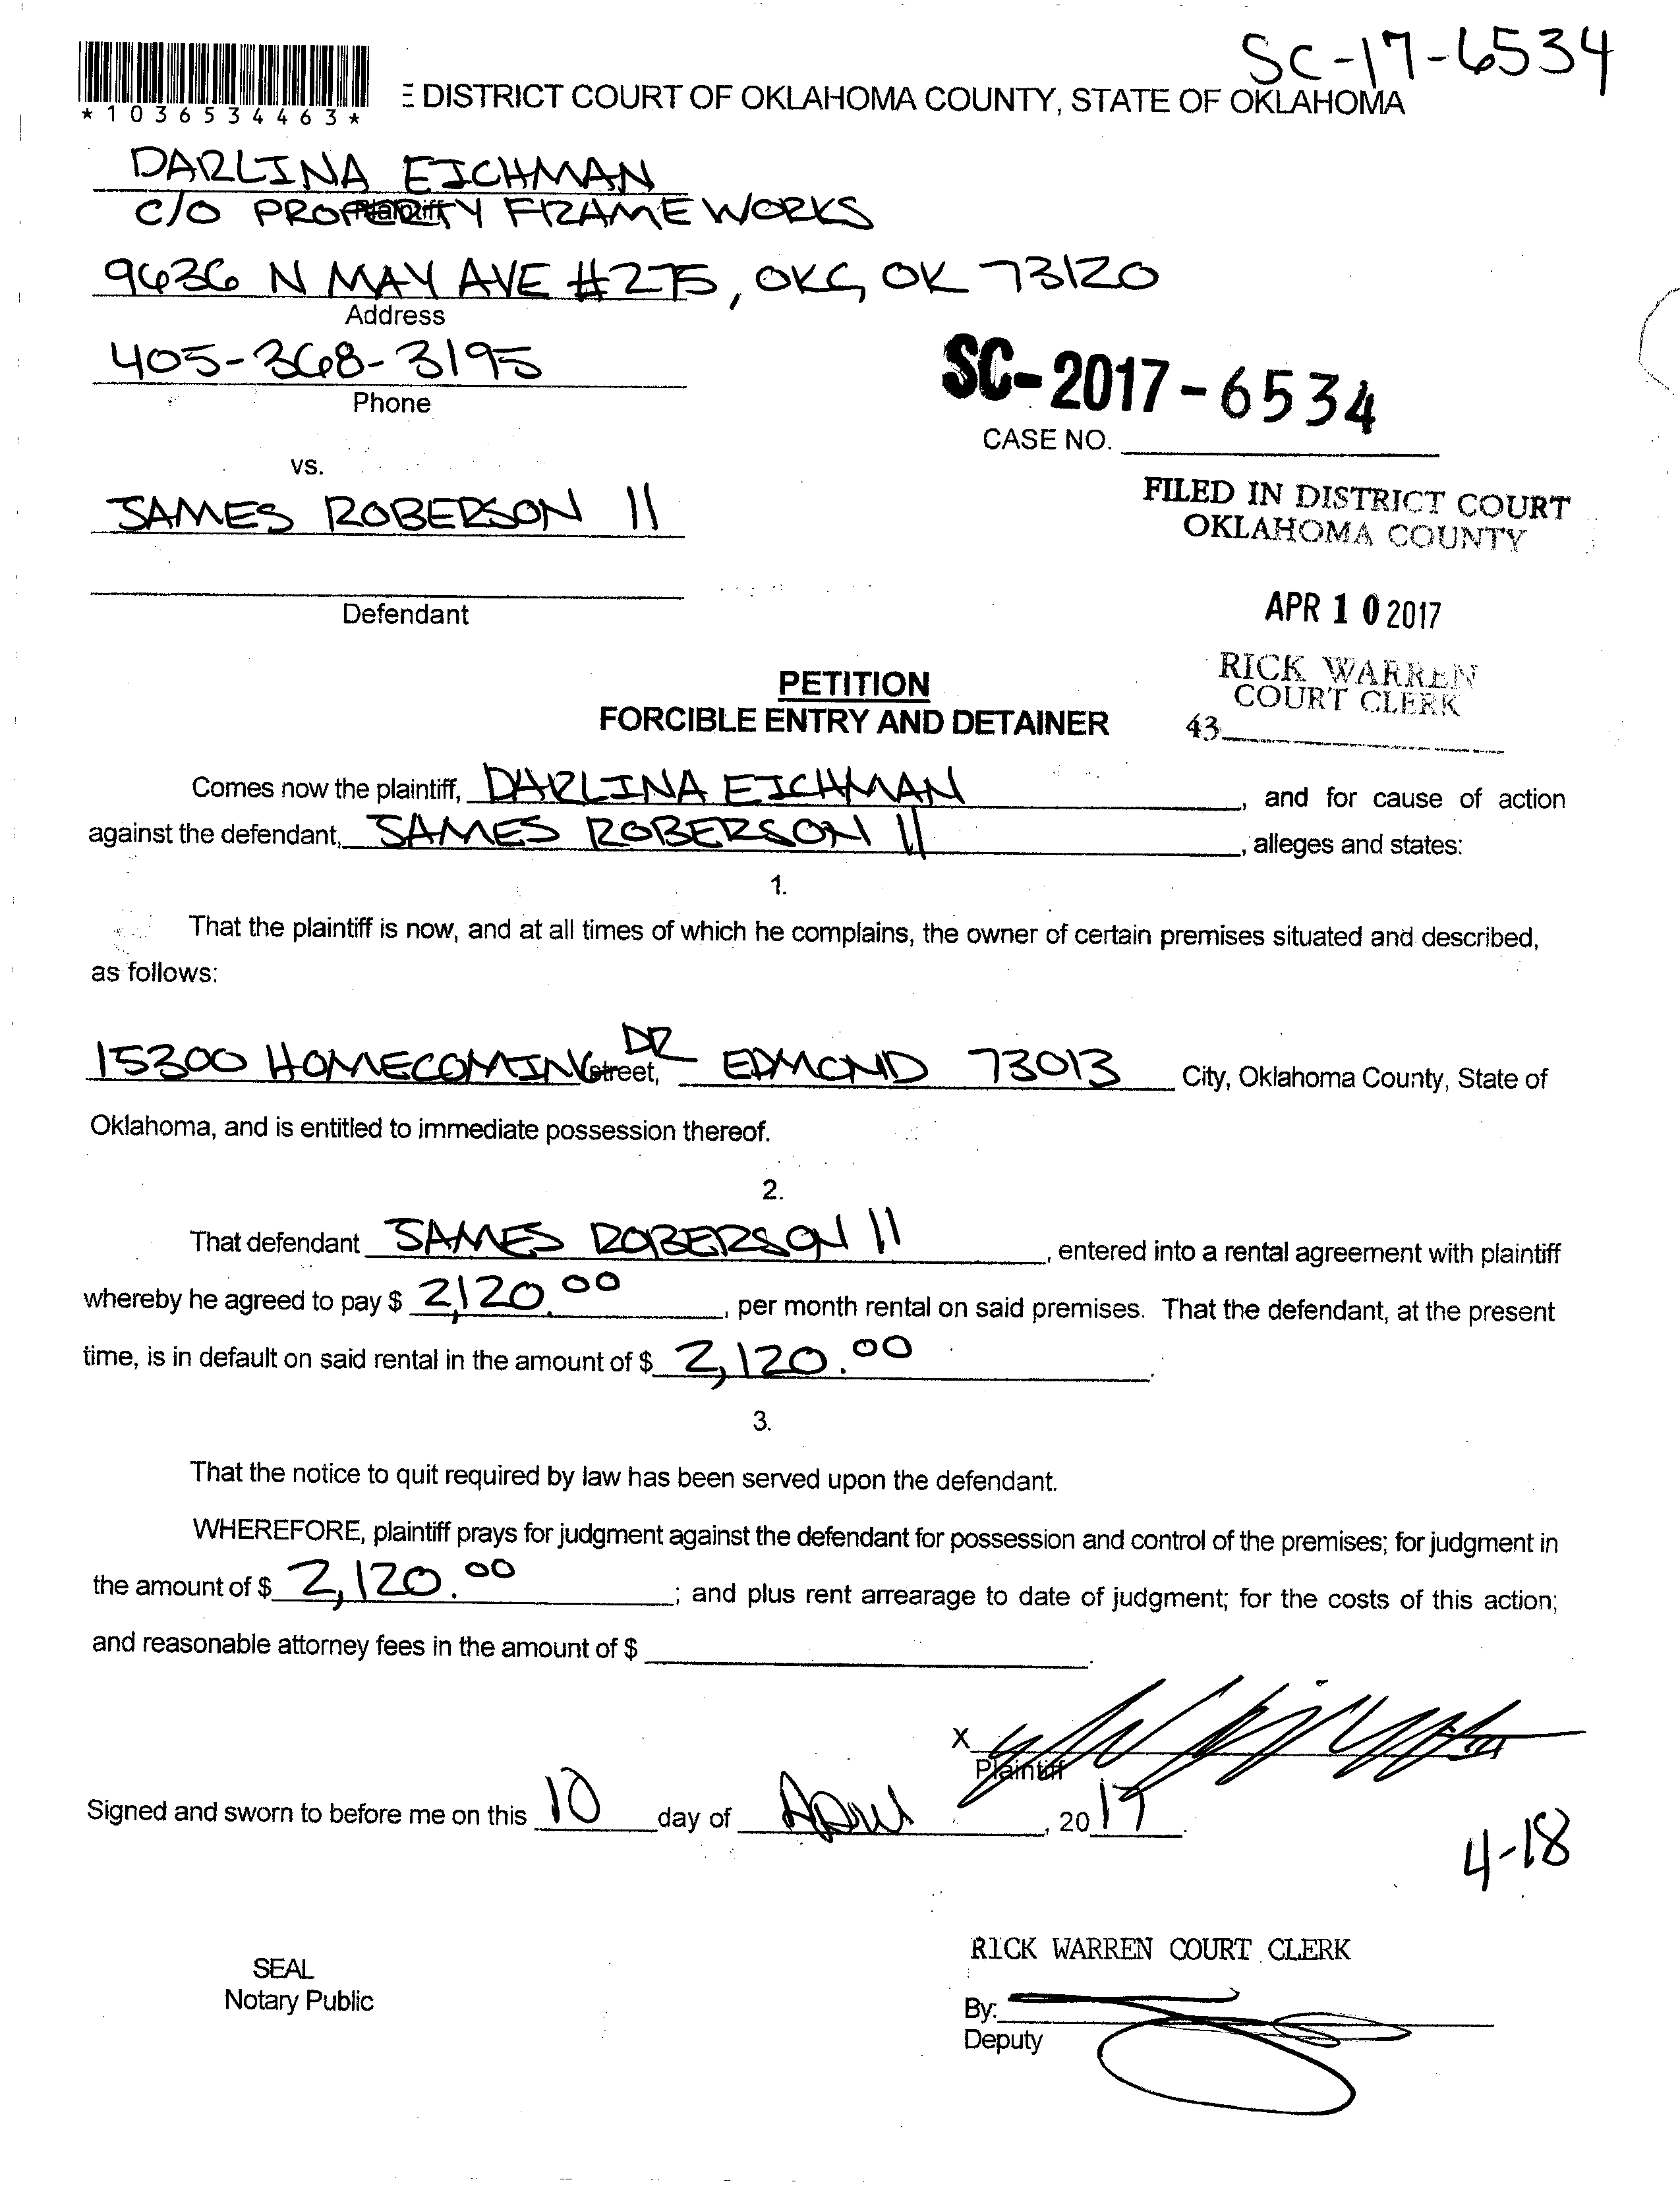 SC-17-6534
*1036534463*
E DISTRICT COURT OF OKLAHOMA COUNTY, STATE OF OKLAHOMA
DARLINA EICHMAN
Plaintiff
C/O PROPERTY FRAMEWORKS
9636 N MAY AVE #275, OKC, OK 73120
Address
405-368-3195
Phone
SC-2017-6534
CASE NO.
vs.
JAMES ROBERSON II
FILED IN DISTRICT COURT
OKLAHOMA COUNTY
Defendant
APR 10 2017
RICK WARREN
COURT CLERK
43
PETITION
FORCIBLE ENTRY AND DETAINER
Comes now the plaintiff, DARLINA EICHMAN, and for cause of action
against the defendant, JAMES ROBERSON II, alleges and states:
1.
That the plaintiff is now, and at all times of which he complains, the owner of certain premises situated and described,
as follows:
15300 HOMECOMING DR street, EDMOND 73013 City, Oklahoma County, State of
Oklahoma, and is entitled to immediate possession thereof.
2.
That defendant JAMES ROBERSON II, entered into a rental agreement with plaintiff
whereby he agreed to pay $ 2,120.00, per month rental on said premises. That the defendant, at the present
time, is in default on said rental in the amount of $ 2,120.00.
3.
That the notice to quit required by law has been served upon the defendant.
WHEREFORE, plaintiff prays for judgment against the defendant for possession and control of the premises; for judgment in
the amount of $ 2,120.00; and plus rent arrearage to date of judgment; for the costs of this action;
and reasonable attorney fees in the amount of $ .
X
Plaintiff
Signed and sworn to before me on this 10 day of April, 2017.
4-18
RICK WARREN COURT CLERK
SEAL
Notary Public
By:
Deputy